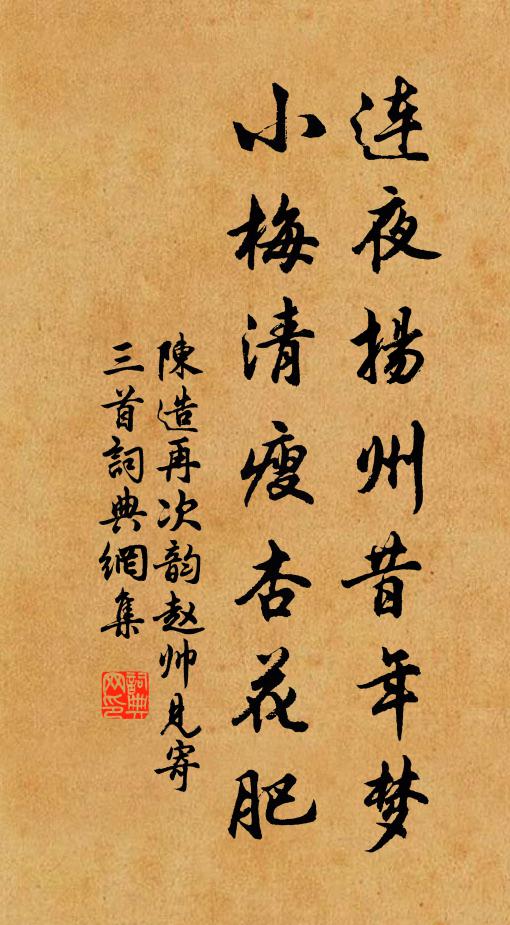 連夜揚州昔年梦
小梅清瘦杏花肥
陳造再次韵赵帅见寄
三首詞典網集
詞典网印